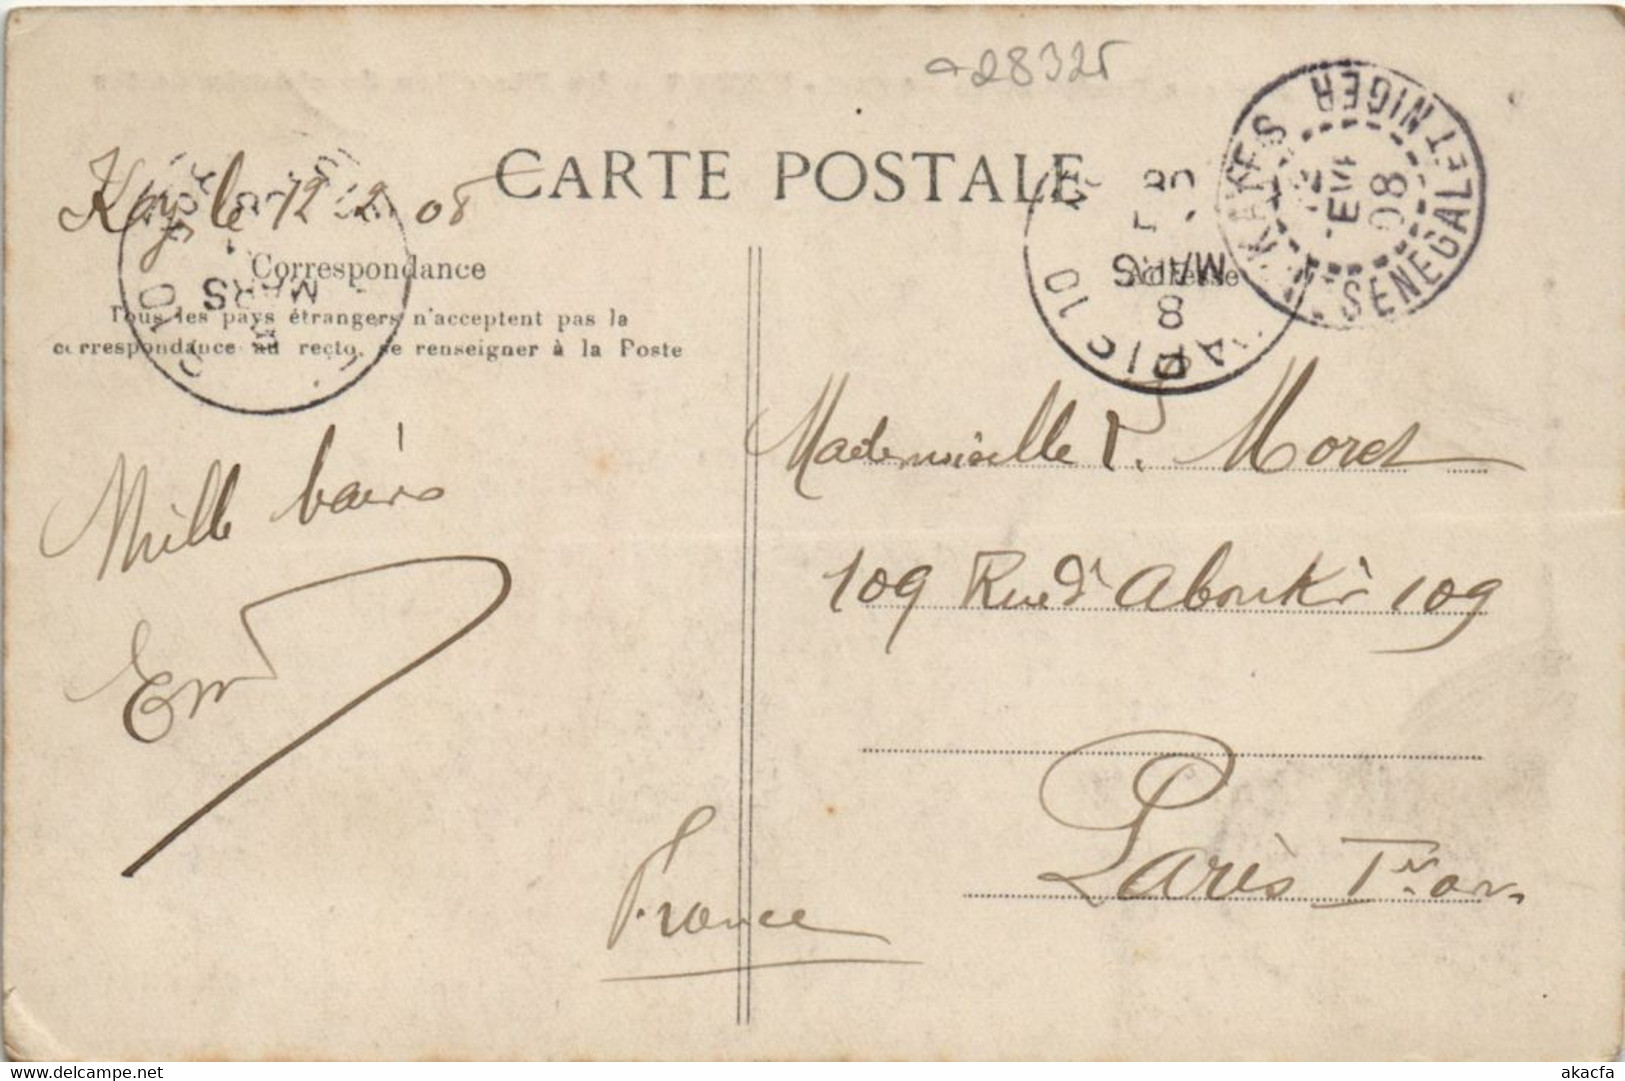 a 28325
CARTE POSTALE
Kayes le 12 2 08
Correspondance
Tous les pays étrangers n'acceptent pas la
correspondance au recto, se renseigner à la Poste
Adresse
KAYES
SENEGAL ET NIGER
08
PARIS 10
8
MARS
MARS
Mille baisers
Em
Mademoiselle Moret
109 Rue d'Aboukir 109
Paris Ier arr.
France
akacfa